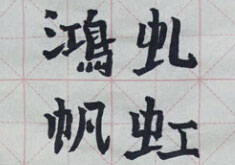 鴻虬
帆虹